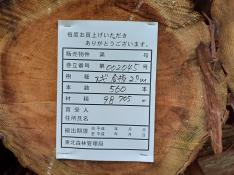 毎度お買上げいただき
ありがとうございます。
販売物件 第 号
巻立番号 第002045号
樹種 スギ
本数 560本
材積 98.705m
買受人
住所氏名
搬出期限
東北森林管理局